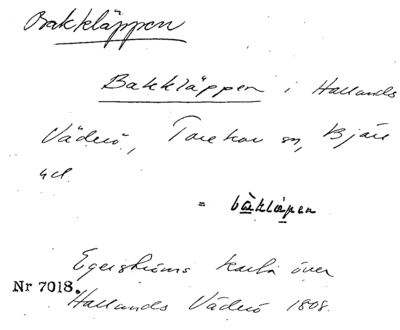 Bakkläppen
Bakkläppen i Hallands
Väderö, Torekov sn, Bjäre
hd.
= bàkläpen
Egerströms karta över
Nr 7018. Hallands Väderö 1808.